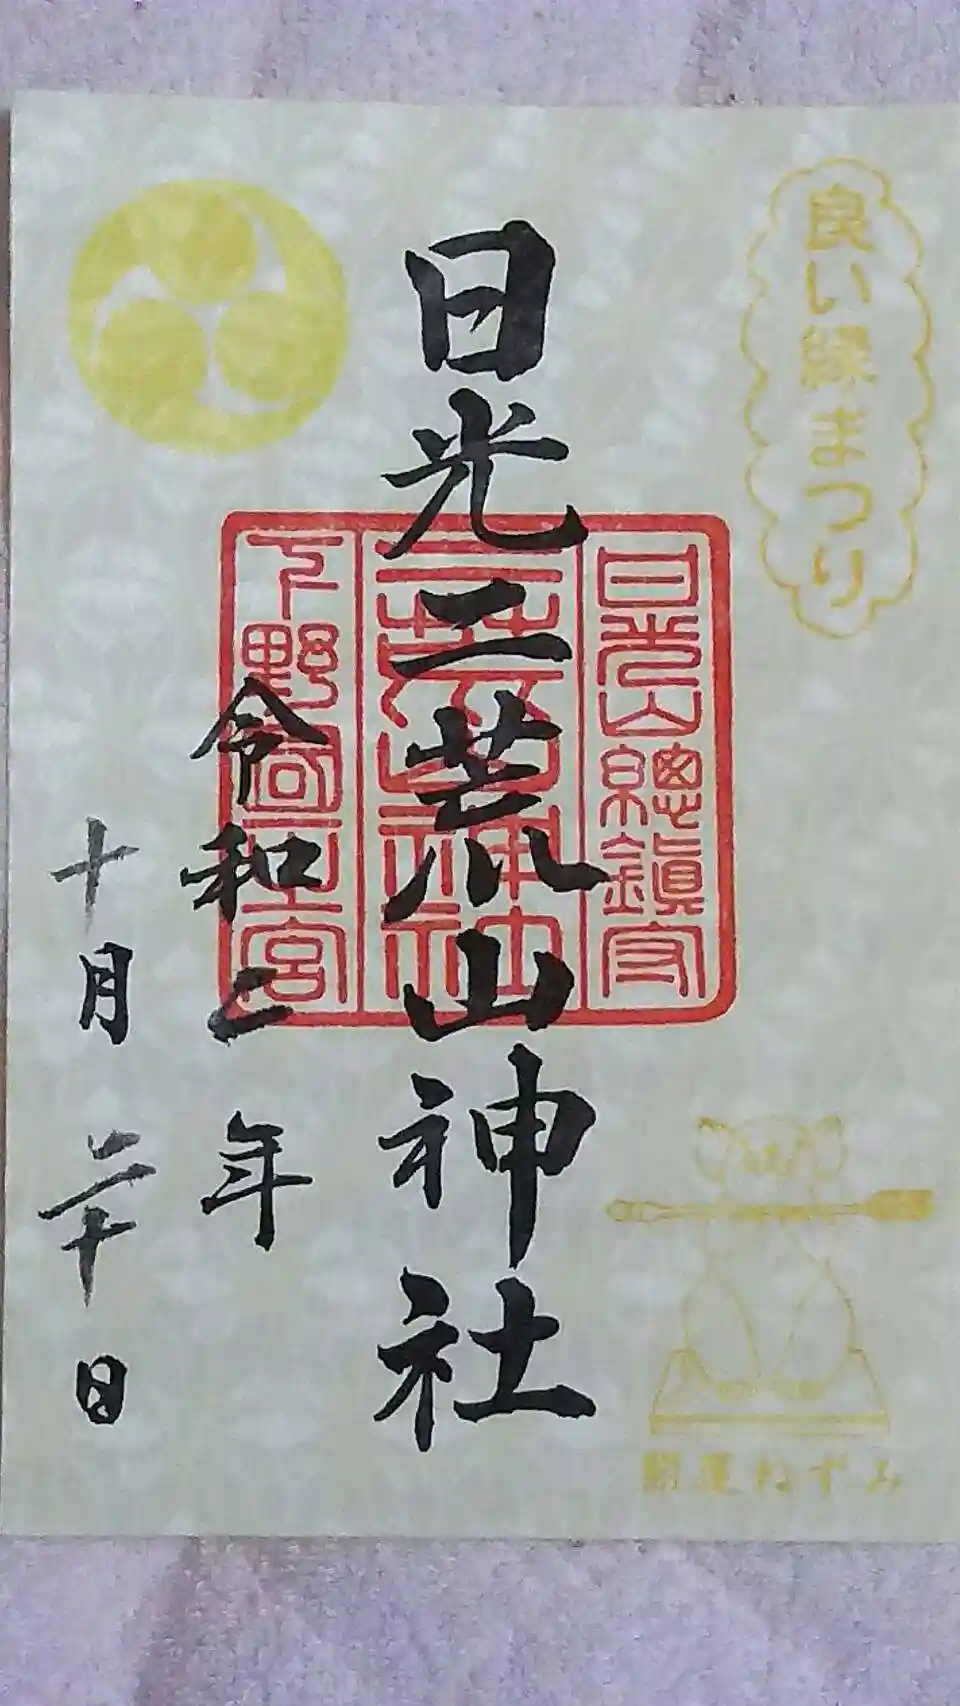 良い縁まつり
日光山總鎮守
二荒山神社
下野国一之宮
日光二荒山神社
令和二年
十月二十日
開運ねずみ